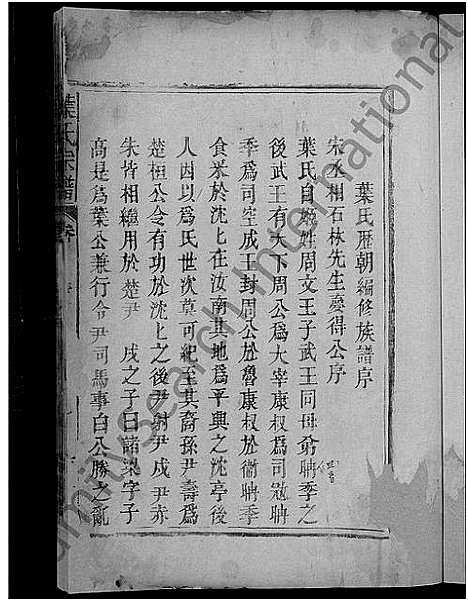 葉氏歷朝編修族譜序
宋丞相石林先生夢得公序
葉氏自姬姓周文王子武王同母弟聃季之
後武王有天下周公爲太宰康叔爲司寇聃
季爲司空成王封周公於魯康叔於衞聃季
食釆於沈上在汝南其地爲平輿之沈亭後
人因以爲氏世次莫可紀至其裔孫尹壽爲
楚桓公令有功於沈上之後尹射尹戍尹赤
朱皆相繼用於楚尹 戍之子曰諸梁字子
高是爲葉公兼行令尹司馬事白公勝之亂
葉氏宗譜